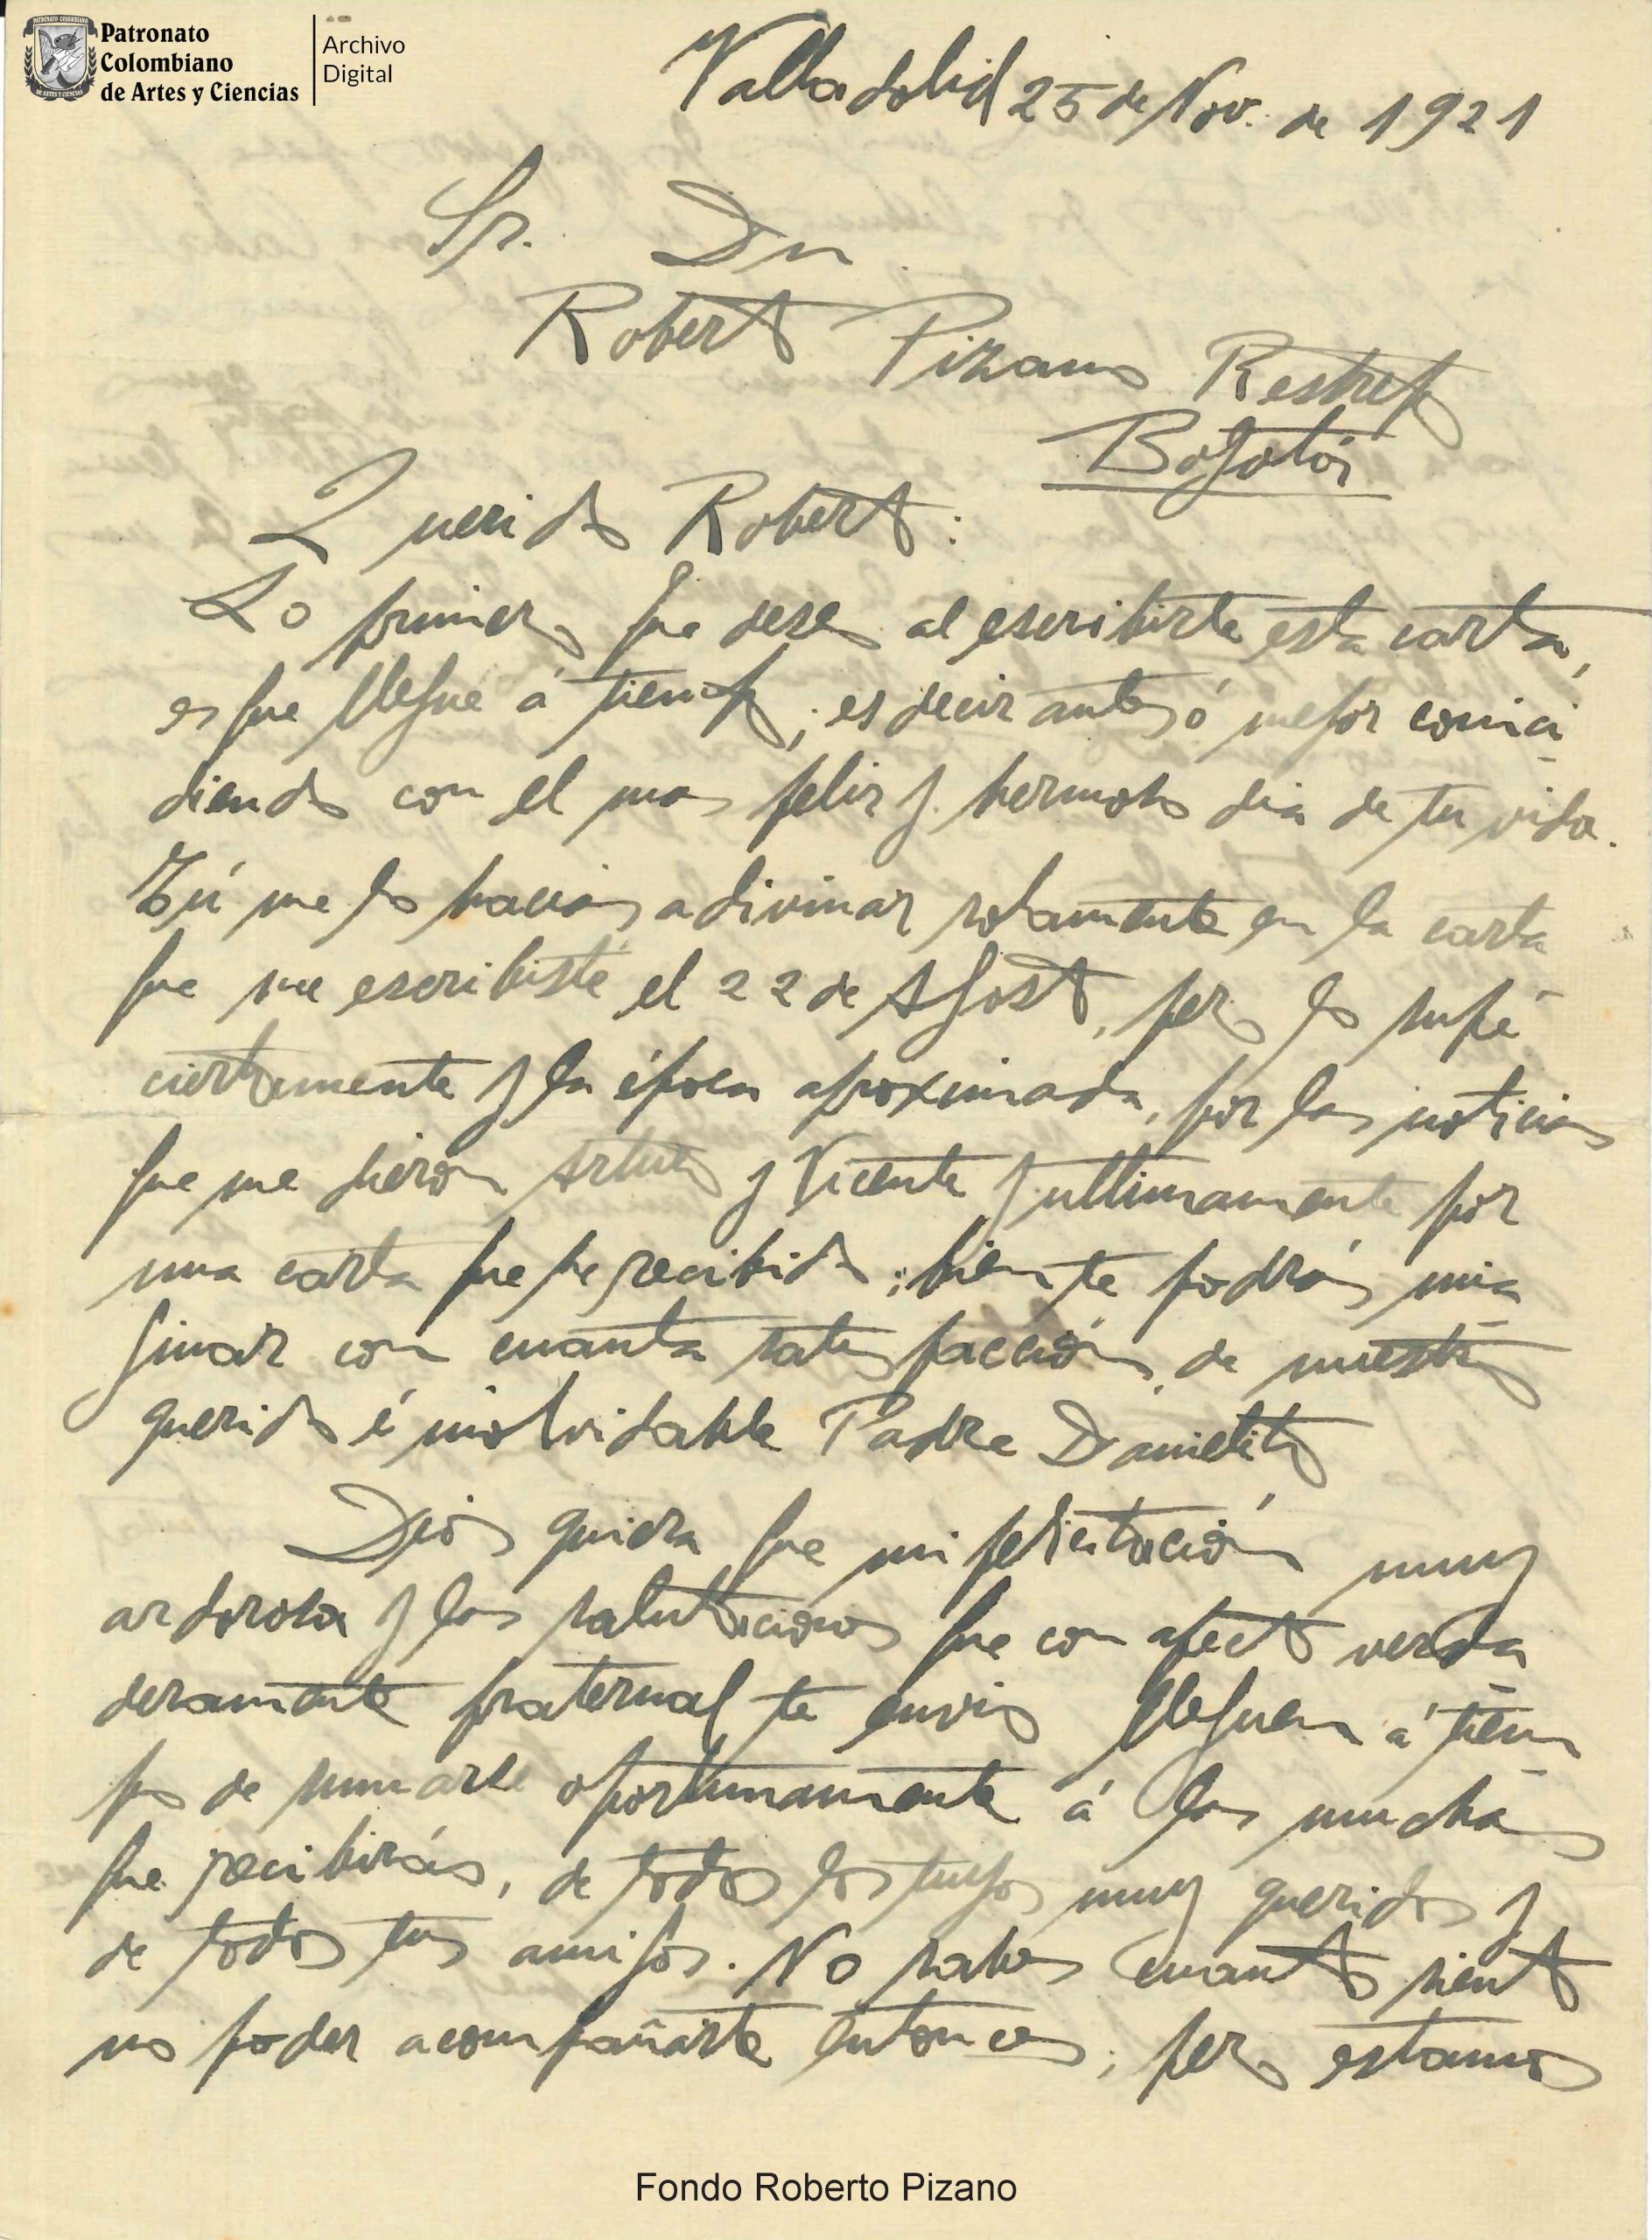 Patronato
Colombiano
de Artes y Ciencias
Archivo
Digital
Valladolid 25 de Nov. de 1921
Sr. Dn
Roberto Pizano Restrepo
Bogotá
Querido Roberto:
Lo primero que deseo al escribirte esta carta,
es que llegue á tiempo; es decir antes ó mejor coinci
diendo con el mas feliz y hermoso dia de tu vida.
Tú me lo hacias adivinar solamente en la carta
que me escribiste el 22 de Agosto, pero lo supé
ciertamente y la época aproximada, por las noticias
que me dieron Arturo y Vicente y ultimamente por
una carta que he recibido; bien te podrás ima
ginar con cuanta satisfacción, de nuestro
querido é inolvidable Padre Danielito
Dios quiera que mi felicitación muy
ardorosa y las salutaciones que con afecto verda
deramente fraternal te envio lleguen á tiem
po de sumarse oportunamente á las muchas
que recibirás, de todos los tuyos muy queridos y
de todos tus amigos. No sabes cuanto siento
no poder acompañarte entonces; pero estamos
Fondo Roberto Pizano